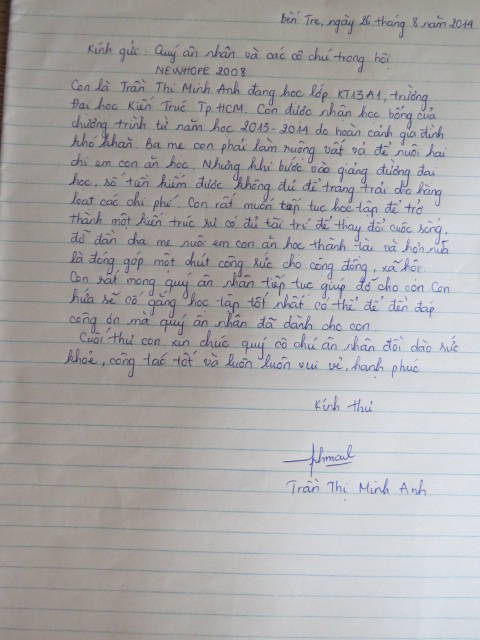 Bến Tre, ngày 26 tháng 8 năm 2014
Kính gửi: Quý ân nhân và các cô chú trong hội
NEWHOPE 2008
Con là Trần Thị Minh Anh đang học lớp KT13A1, trường
Đại học Kiến Trúc Tp.HCM. Con được nhận học bổng của
chương trình từ năm học 2013-2014 do hoàn cảnh gia đình
khó khăn. Ba mẹ con phải làm ruộng vất vả để nuôi hai
chị em con ăn học. Nhưng khi bước vào giảng đường đại
học, số tiền kiếm được không đủ để trang trải cho hàng
loạt các chi phí. Con rất muốn tiếp tục học tập để trở
thành một kiến trúc sư có đủ tài trí để thay đổi cuộc sống,
đỡ đần cha mẹ nuôi em con ăn học thành tài và hơn nữa
là đóng góp một chút công sức cho cộng đồng, xã hội.
Con rất mong quý ân nhân tiếp tục giúp đỡ cho con. Con
hứa sẽ cố gắng học tập tốt nhất có thể để đền đáp
công ơn mà quý ân nhân đã dành cho con.
Cuối thư con xin chúc quý cô chú ân nhân dồi dào sức
khoẻ, công tác tốt và luôn luôn vui vẻ, hạnh phúc
Kính thư
Trần Thị Minh Anh